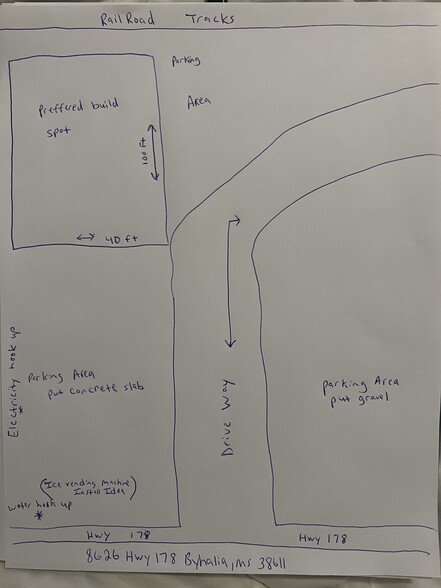 RailRoad Tracks
Parking
Area
Preffered build
spot
100 ft
40 ft
Electricity hook up
*
Parking Area
put concrete slab
Drive Way
parking Area
put gravel
(Ice vending machine
Install Idea)
water hook up
*
Hwy 178
Hwy 178
8626 Hwy 178 Byhalia, ms 38611